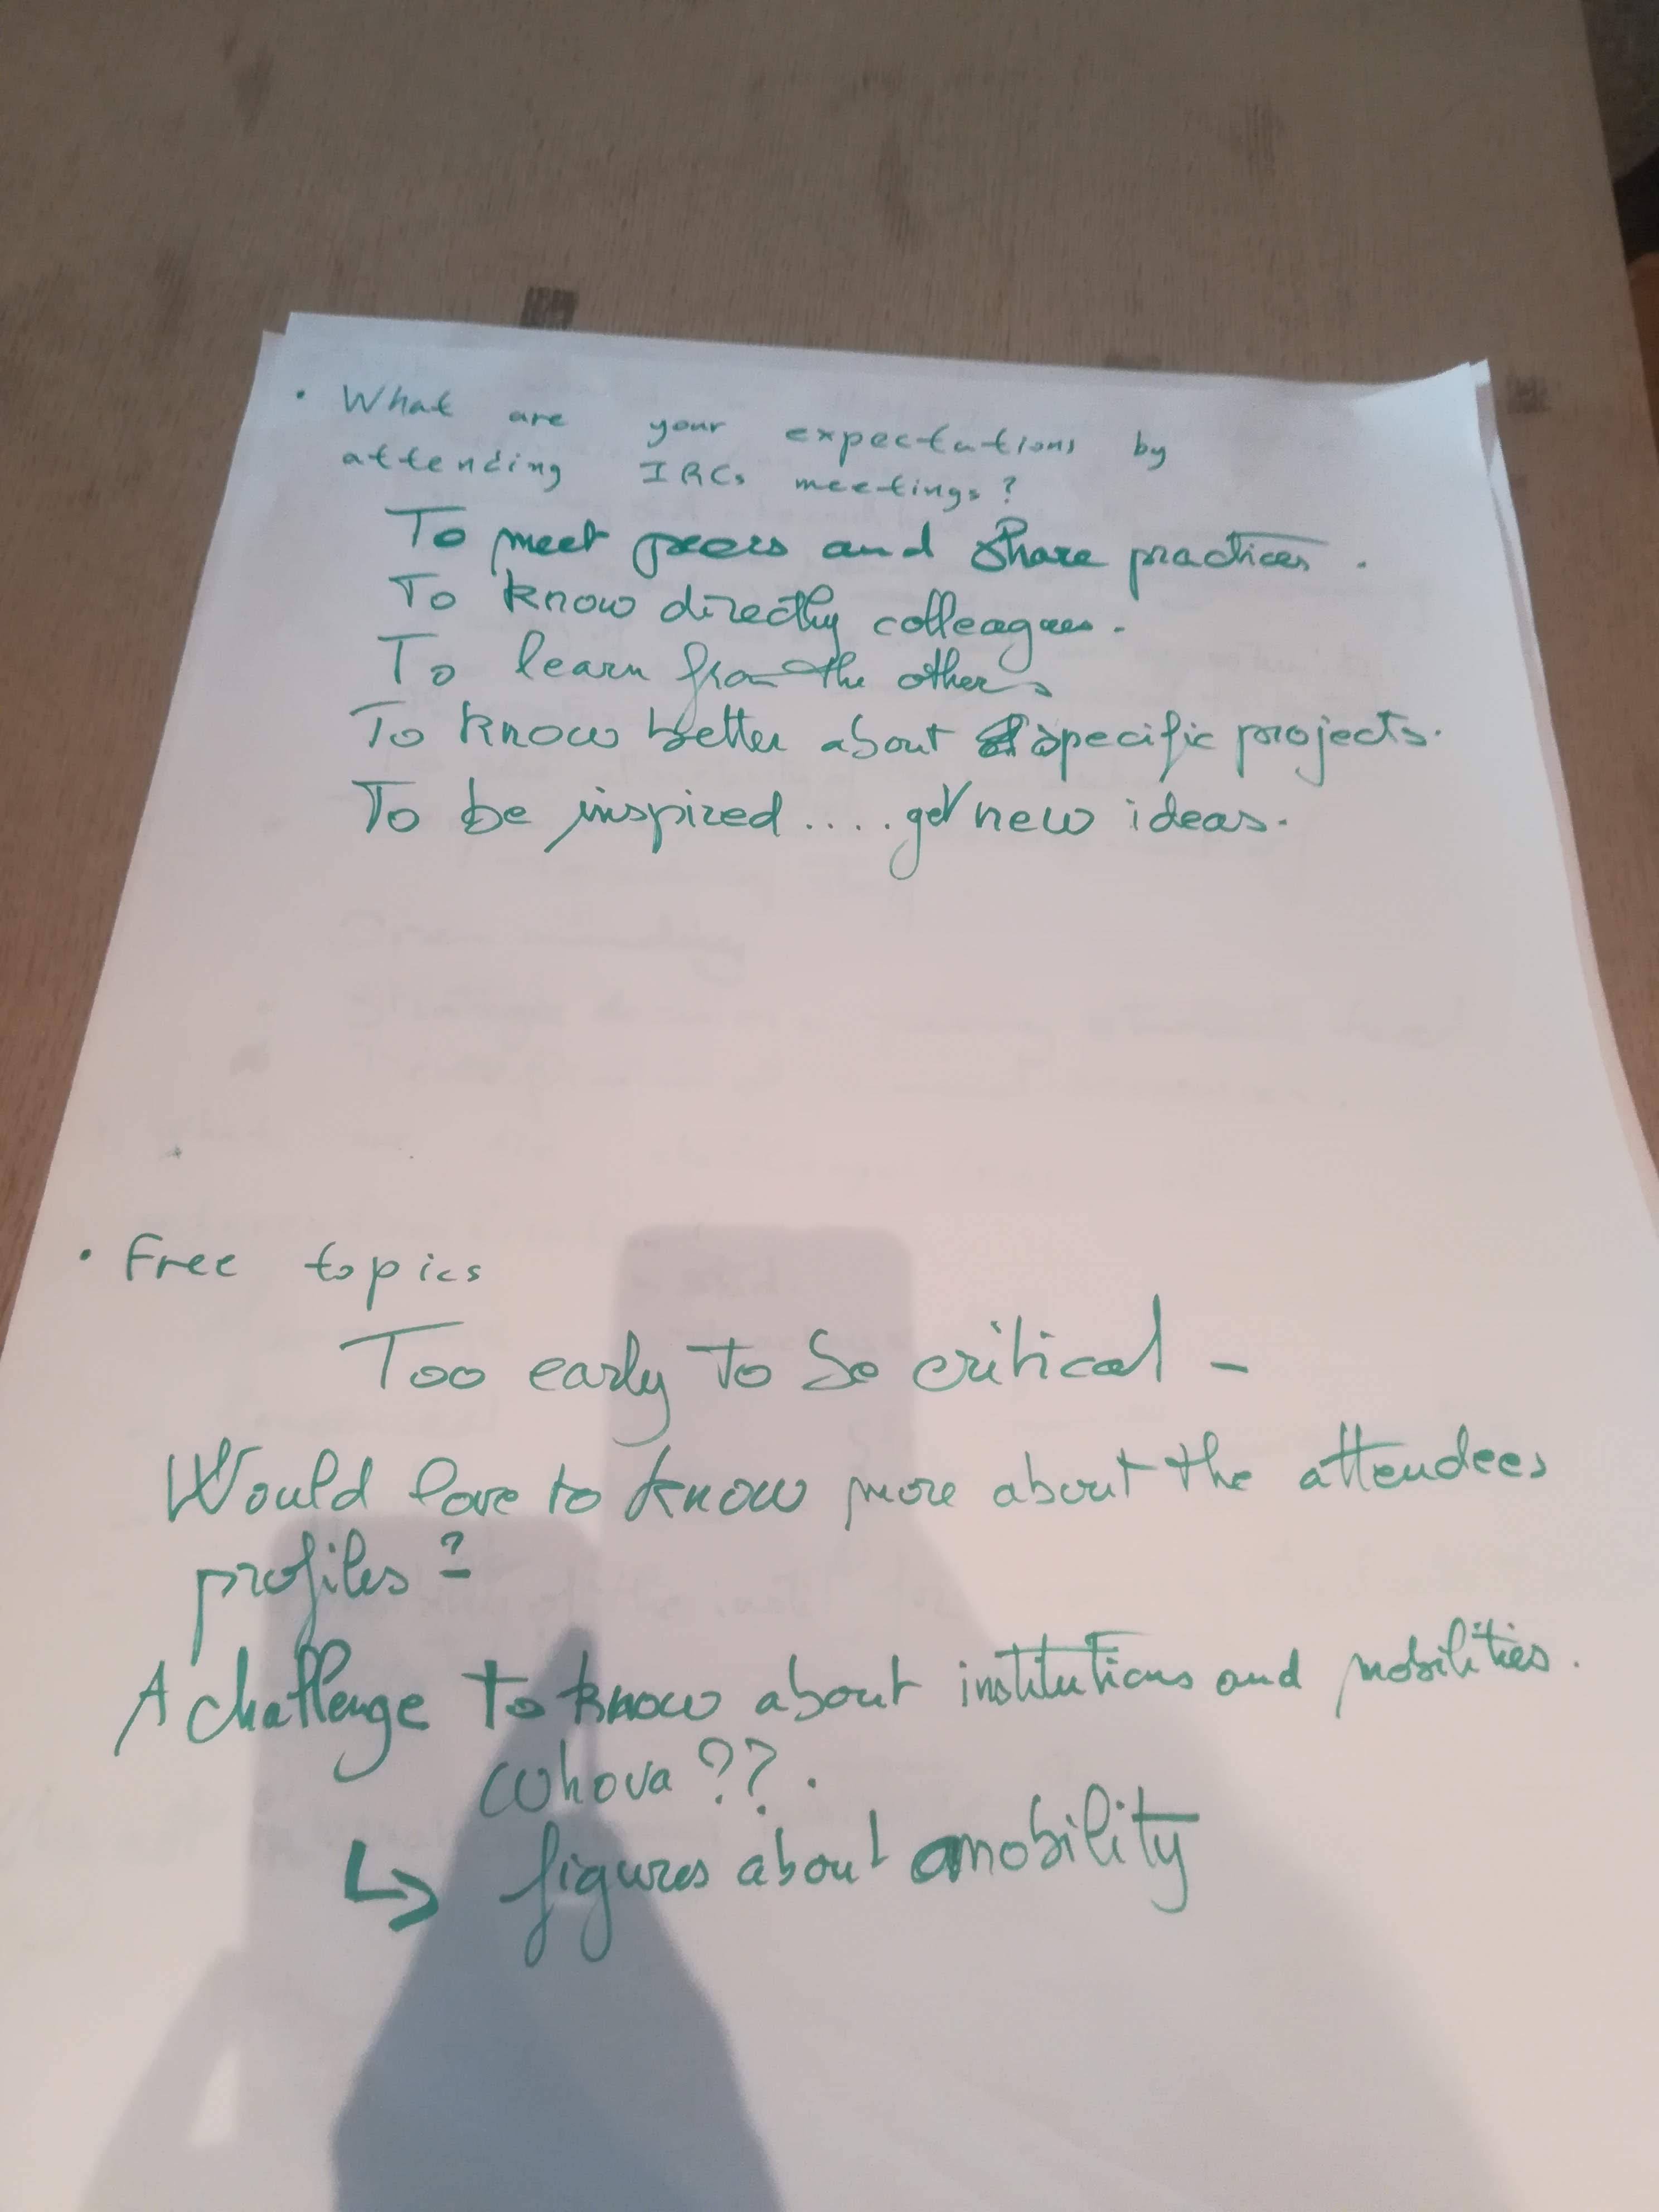 • What are your expectations by
attending IRCs meetings?
To meet peers and share practices.
To know directly colleagues.
To learn from the others
To know better about specific projects.
To be inspired.... get new ideas.
• Free topics
Too early to so critical -
Would love to know more about the attendees
profiles?
A challenge to know about institutions and mobilities.
Whova??.
↳ figures about mobility